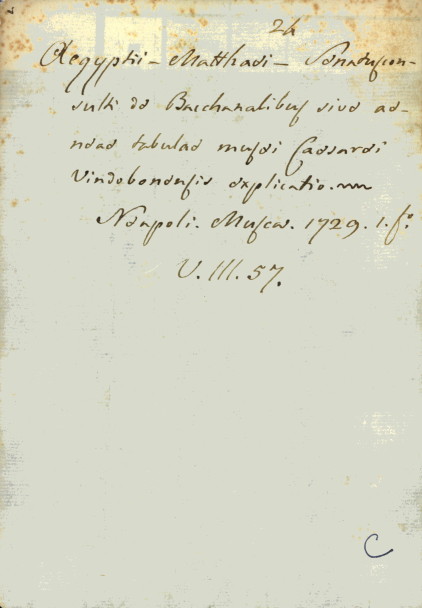 24
Aegyptii - Matthaei - Senatuscon-
sulti de Bacchanalibus sive ae-
neae tabulae musei Caesarei
Vindobonensis explicatio.
Neapoli. Muscas. 1729. 1. fº.
V. III. 57.
C